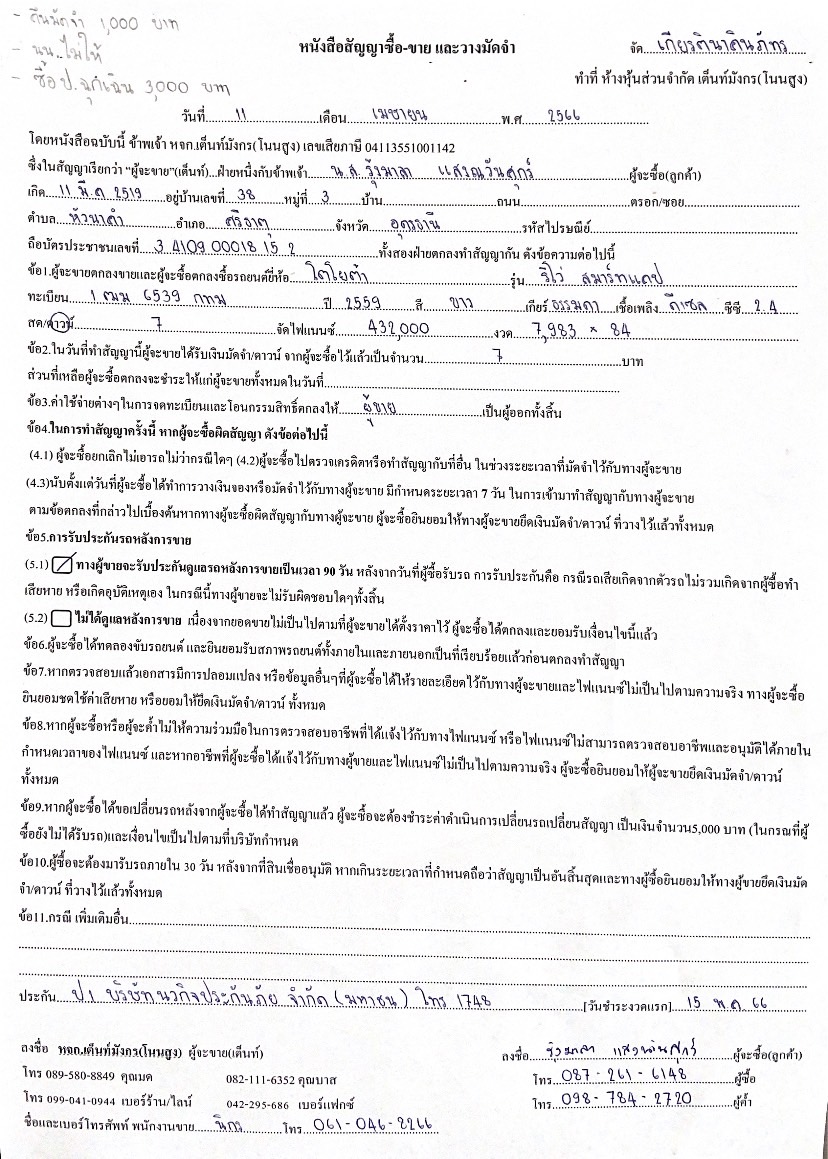 - คืนมัดจำ 1,000 บาท
- นน. ไม่ให้
- ซื้อ ป.ฉุกเฉิน 3,000 บาท
หนังสือสัญญาซื้อ-ขาย และวางมัดจำ
จัด เกียรตินาคินภัทร
ทำที่ ห้างหุ้นส่วนจำกัด เต็นท์มังกร(โนนสูง)
วันที่ 11 เดือน เมษายน พ.ศ 2566
โดยหนังสือฉบับนี้ ข้าพเจ้า หจก.เต็นท์มังกร(โนนสูง) เลขเสียภาษี 04113551001142
ซึ่งในสัญญาเรียกว่า "ผู้จะขาย"(เต็นท์) ฝ่ายหนึ่งกับข้าพเจ้า น.ส. รุ้งมาลา แสงณวันศุกร์ ผู้จะซื้อ(ลูกค้า)
เกิด 11 มี.ค 2519 อยู่บ้านเลขที่ 38 หมู่ที่ 3 บ้าน ถนน ตรอก/ซอย
ตำบล หัวนาคำ อำเภอ ศรีธาตุ จังหวัด อุดรธานี รหัสไปรษณีย์
ถือบัตรประชาชนเลขที่ 3 4109 00018 15 2 ทั้งสองฝ่ายตกลงทำสัญญากัน ดังข้อความต่อไปนี้
ข้อ1.ผู้จะขายตกลงขายและผู้จะซื้อตกลงซื้อรถยนต์ยี่ห้อ โตโยต้า รุ่น รีโว่ สมาร์ทแคป
ทะเบียน 1 ฒฆ 6539 กทม ปี 2559 สี ขาว เกียร์ ธรรมดา เชื้อเพลิง ดีเซล ซีซี 2.4
สด/ดาวน์ 7 จัดไฟแนนซ์ 432,000 งวด 7,983 × 84
ข้อ2.ในวันที่ทำสัญญานี้ผู้จะขายได้รับเงินมัดจำ/ดาวน์ จากผู้จะซื้อไว้แล้วเป็นจำนวน 7 บาท
ส่วนที่เหลือผู้จะซื้อตกลงจะชำระให้แก่ผู้จะขายทั้งหมดในวันที่
ข้อ3.ค่าใช้จ่ายต่างๆในการจดทะเบียนและโอนกรรมสิทธิ์ตกลงให้ ผู้ขาย เป็นผู้ออกทั้งสิ้น
ข้อ4.ในการทำสัญญาครั้งนี้ หากผู้จะซื้อผิดสัญญา ดังข้อต่อไปนี้
(4.1) ผู้จะซื้อยกเลิกไม่เอารถไม่ว่ากรณีใดๆ (4.2)ผู้จะซื้อไปตรวจเครดิตหรือทำสัญญากับที่อื่น ในช่วงระยะเวลาที่มัดจำไว้กับทางผู้จะขาย
(4.3)นับตั้งแต่วันที่ผู้จะซื้อได้ทำการวางเงินจองหรือมัดจำไว้กับทางผู้จะขาย มีกำหนดระยะเวลา 7 วัน ในการเข้ามาทำสัญญากับทางผู้จะขาย
ตามข้อตกลงที่กล่าวไปเบื้องต้นหากทางผู้จะซื้อผิดสัญญากับทางผู้จะขาย ผู้จะซื้อยินยอมให้ทางผู้จะขายยึดเงินมัดจำ/ดาวน์ ที่วางไว้แล้วทั้งหมด
ข้อ5.การรับประกันรถหลังการขาย
(5.1) ทางผู้ขายจะรับประกันดูแลรถหลังการขายเป็นเวลา 90 วัน หลังจากวันที่ผู้ซื้อรับรถ การรับประกันคือ กรณีรถเสียเกิดจากตัวรถไม่รวมเกิดจากผู้ซื้อทำ
เสียหาย หรือเกิดอุบัติเหตุเอง ในกรณีนี้ทางผู้ขายจะไม่รับผิดชอบใดๆทั้งสิ้น
(5.2) ไม่ได้ดูแลหลังการขาย เนื่องจากยอดขายไม่เป็นไปตามที่ผู้จะขายได้ตั้งราคาไว้ ผู้จะซื้อได้ตกลงและยอมรับเงื่อนไขนี้แล้ว
ข้อ6.ผู้จะซื้อได้ทดลองขับรถยนต์ และยินยอมรับสภาพรถยนต์ทั้งภายในและภายนอกเป็นที่เรียบร้อยแล้วก่อนตกลงทำสัญญา
ข้อ7.หากตรวจสอบแล้วเอกสารมีการปลอมแปลง หรือข้อมูลอื่นๆที่ผู้จะซื้อได้ให้รายละเอียดไว้กับทางผู้จะขายและไฟแนนซ์ไม่เป็นไปตามความจริง ทางผู้จะซื้อ
ยินยอมชดใช้ค่าเสียหาย หรือยอมให้ยึดเงินมัดจำ/ดาวน์ ทั้งหมด
ข้อ8.หากผู้จะซื้อหรือผู้จะค้ำไม่ให้ความร่วมมือในการตรวจสอบอาชีพที่ได้แจ้งไว้กับทางไฟแนนซ์ หรือไฟแนนซ์ไม่สามารถตรวจสอบอาชีพและอนุมัติได้ภายใน
กำหนดเวลาของไฟแนนซ์ และหากอาชีพที่ผู้จะซื้อได้แจ้งไว้กับทางผู้ขายและไฟแนนซ์ไม่เป็นไปตามความจริง ผู้จะซื้อยินยอมให้ผู้จะขายยึดเงินมัดจำ/ดาวน์
ทั้งหมด
ข้อ9.หากผู้จะซื้อได้ขอเปลี่ยนรถหลังจากผู้จะซื้อได้ทำสัญญาแล้ว ผู้จะซื้อจะต้องชำระค่าดำเนินการเปลี่ยนรถเปลี่ยนสัญญา เป็นเงินจำนวน5,000 บาท (ในกรณที่ผู้
ซื้อยังไม่ได้รับรถ)และเงื่อนไขเป็นไปตามที่บริษัทกำหนด
ข้อ10.ผู้ซื้อจะต้องมารับรถภายใน 30 วัน หลังจากที่สินเชื่ออนุมัติ หากเกินระยะเวลาที่กำหนดถือว่าสัญญาเป็นอันสิ้นสุดและทางผู้ซื้อยินยอมให้ทางผู้ขายยึดเงินมัด
จำ/ดาวน์ ที่วางไว้แล้วทั้งหมด
ข้อ11.กรณี เพิ่มเติมอื่น
ประกัน ป.1 บริษัทนวกิจประกันภัย จำกัด (มหาชน) โทร 1748 [วันชำระงวดแรก] 15 พ.ค 66
ลงชื่อ หจก.เต็นท์มังกร(โนนสูง) ผู้จะขาย(เต็นท์)
ลงชื่อ ผู้จะซื้อ(ลูกค้า)
โทร 089-580-8849 คุณมด 082-111-6352 คุณบาส
โทร 087-261-6148 ผู้ซื้อ
โทร 099-041-0944 เบอร์ร้าน/ไลน์ 042-295-686 เบอร์แฟกซ์
โทร 098-784-2720 ผู้ค้ำ
ชื่อและเบอร์โทรศัพท์ พนักงานขาย นิกร โทร 061-046-2266